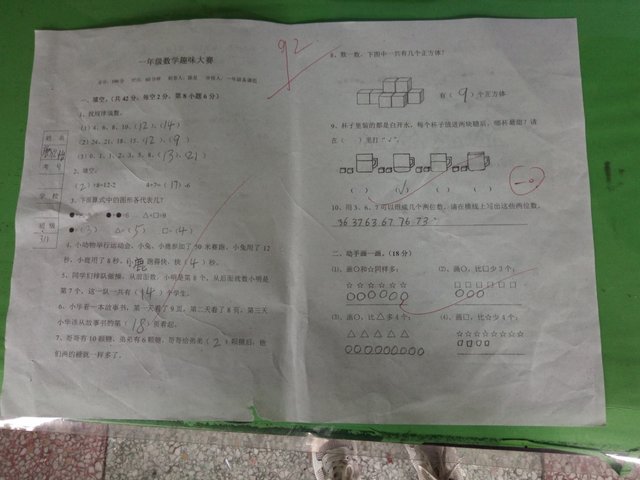 92
一年级数学趣味大赛
一、填空。(共42分，每空2分，第8小题6分)
1、找规律填数。
(1) 4、6、8、10、(12)、(14)
(2) 24、21、18、15、(12)、(9)
(3) 0、1、1、2、3、5、8、(13)、(21)
2、填空。
(2)+8=12-2 4+7=(17)-6
3、下面算式中的图形各代表几？
●=(3) △=(5) □=(4)
4、小动物举行运动会，小兔、小鹿参加了50米赛跑，小兔用了12
秒，小鹿用了8秒。小鹿跑得快，快(4)秒。
5、同学们排队做操，从前面数，小明是第8个，从后面找数小明是
第7个，这一队一共有(14)个学生。
6、小华看一本故事书，第一天看了9页，第二天看了8页，第三天
小华该从故事书的第(18)页看起。
7、哥哥有10颗糖，弟弟有6颗糖，哥哥给弟弟(2)颗糖后，他
们两的糖就一样多了。
姓名
考号
学校
班级
8、数一数，下图中一共有几个正方体？
有(9)个正方体
9、杯子里装的都是白开水，每个杯子放进两块糖后，哪杯最甜？请
在( )里打“√”。
( ) (√) ( ) ( )
10、用3、6、7可以组成几个两位数，请在横线上写出这些两位数。
36 37 63 67 76 73
二、动手画一画。(18分)
(1)、画○和☆同样多； (2)、画○，比□少3个；
☆☆☆☆☆☆ □□□□□□
○○○○○○ ○○○
(3)、画○，比△多4个； (4)、画□，比☆少4个；
△△△△△ ☆☆☆☆☆☆☆☆
○○○○○○○○○ □□□□